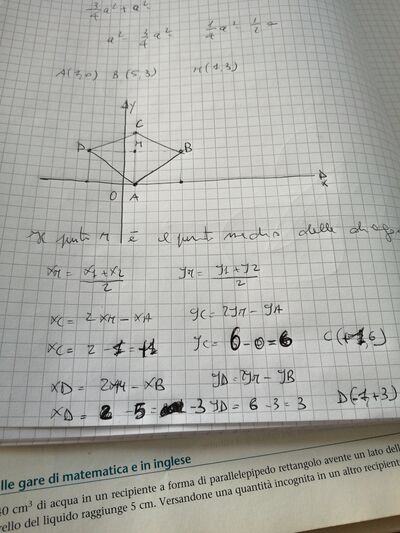 3/4 a² + a²
a² - 3/4 a² 1/4 a² 1/2 a
A(1,0) B(5,3) M(1,3)
y
C
D M B
x
O A
Il punto M è il punto medio delle
xM = x1+x2/2 yM = y1+y2/2
xC = 2xM - xA yC = 2yM - yA
xC = 2 - 1 = +1 yC = 6 - 0 = 6 C(+1,6)
xD = 2xM - xB yD = yM - yB
xD = 2 - 5 = -3 yD = 6 - 3 = 3 D( ,+3)
lle gare di matematica e in inglese
40 cm³ di acqua in un recipiente a forma di parallelepipedo rettangolo avente un lato dell
rello del liquido raggiunge 5 cm. Versandone una quantità incognita in un altro recipiente